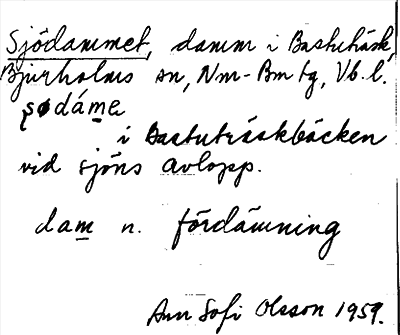 Sjödammet, damm i Bastuträsk,
Bjurholms sn, Nm-Bm tg, Vb. l.
ʂødáme
i Bastuträskbäcken
vid sjöns avlopp.
dam n. fördämning
Ann Sofi Olsson 1959.